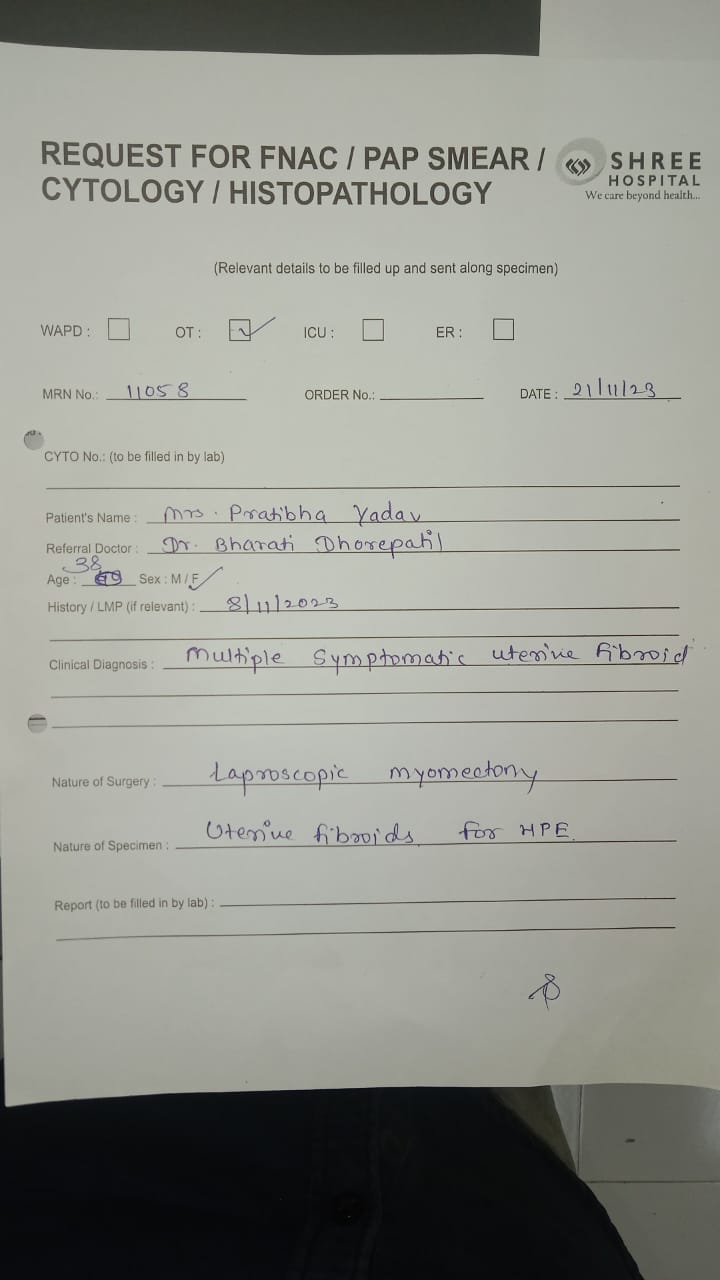 REQUEST FOR FNAC / PAP SMEAR /
CYTOLOGY / HISTOPATHOLOGY
SHREE
HOSPITAL
We care beyond health...
(Relevant details to be filled up and sent along specimen)
WAPD : OT : ICU : ER :
MRN No.: 11058 ORDER No.: DATE : 21/11/23
CYTO No.: (to be filled in by lab)
Patient's Name : Mrs. Pratibha Yadav
Referral Doctor : Dr. Bharati Dhorepatil
38
Age : Sex : M / F
History / LMP (if relevant) : 8/11/2023
Clinical Diagnosis : Multiple Symptomatic uterine fibroid
Nature of Surgery : Laproscopic myomectony
Nature of Specimen : Uterine fibroids for HPE.
Report (to be filled in by lab) :